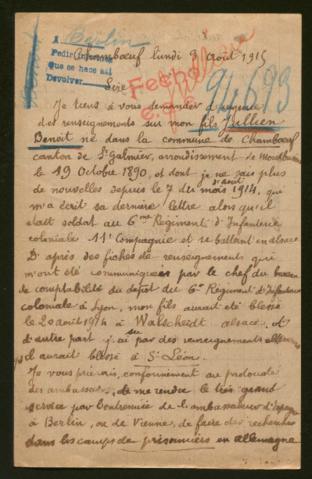 A Berlin
Pedir informes
Que se hace así
Devolver
Chambœuf lundi 9 août 1915
Sire
Fechado
94693
Je tiens à vous demander
des renseignements sur mon fils Jullien
Benoit né dans la commune de Chambœuf
canton de St Galmier, arrondissement de Montbrison
le 19 Octobre 1890, et dont je n'ai plus
de nouvelles depuis le 7 du mois d'août 1914, qui
m'a écrit sa dernière lettre alors qu'il
était soldat au 6me Régiment d'Infanterie
coloniale 11e Compagnie et se battant en alsace
D'après des fiches de renseignements qui
m'ont été communiquées par le chef du bureau
de comptabilité du dépôt du 6e Régiment d'Infanterie
coloniale à Lyon, mon fils aurait été blessé
le 20 août 1914 à Walscheidt alsace, et
d'autre part j'ai eu par des renseignements allemands
qu'il aurait été blessé à St Léon.
Je vous prierais, conformément au protocole
des ambassades, de me rendre le très grand
service par l'entremise de l'ambassadeur d'Espagne
à Berlin, ou de Vienne, de faire des recherches
dans les camps de prisonniers en allemagne